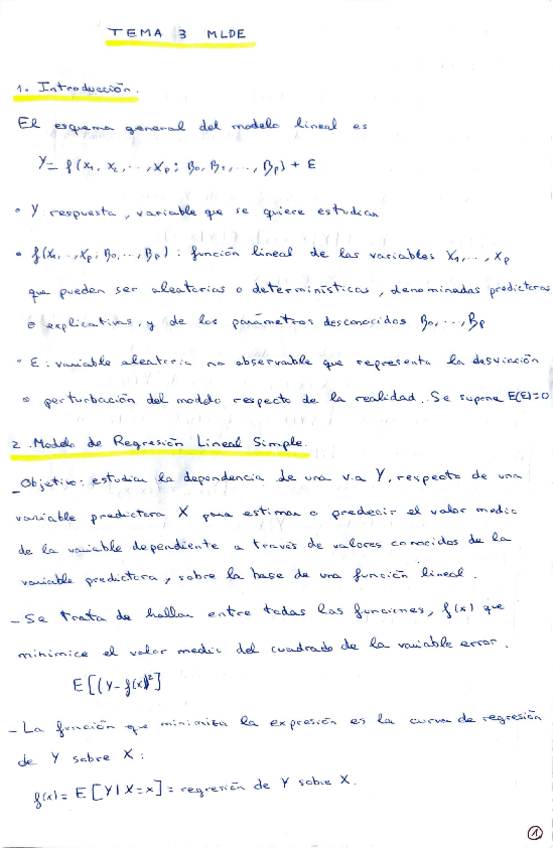 TEMA 3 MLDE
1. Introducción.
El esquema general del modelo lineal es
Y = f(X1, X2, ..., Xp; β0, β1, ..., βp) + E
• Y respuesta, variable que se quiere estudiar
• f(X1, .., Xp, β0, ..., βp) : función lineal de las variables X1, ..., Xp
que pueden ser aleatorias o determinísticas, denominadas predictoras
o explicativas, y de los parámetros desconocidos β0, ..., βp
• E : variable aleatoria no observable que representa la desviación
o perturbación del modelo respecto de la realidad. Se supone E(E)=0
2. Modelo de Regresión Lineal Simple.
- Objetivo: estudiar la dependencia de una v.a Y, respecto de una
variable predictora X para estimar o predecir el valor medio
de la variable dependiente a través de valores conocidos de la
variable predictora, sobre la base de una función lineal.
- Se trata de hallar entre todas las funciones, f(x) que
minimice el valor medio del cuadrado de la variable error.
E[(Y-f(x))²]
- La función que minimiza la expresión es la curva de regresión
de Y sobre X:
f(x) = E[Y|X=x] = regresión de Y sobre X.
1